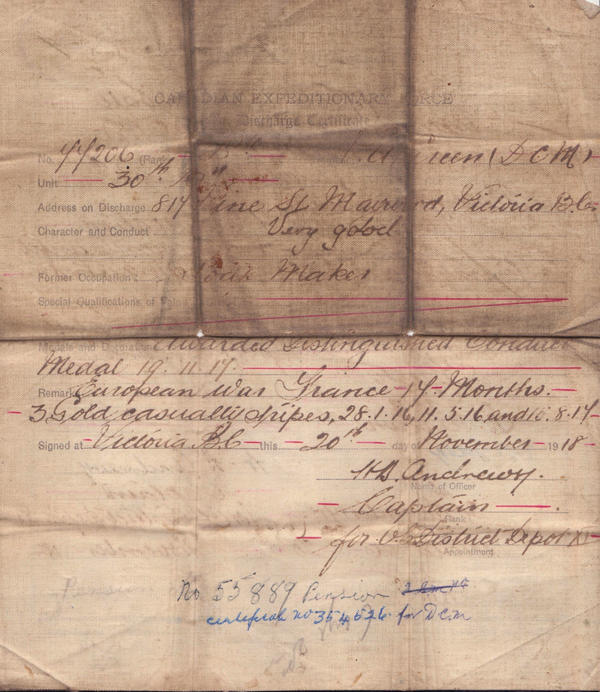 CANADIAN EXPEDITIONARY FORCE
Discharge Certificate
No. 77206 (Rank) Green (DCM)
Unit 30th Bn
Address on Discharge 817 Pine St Maywood, Victoria B.C.
Character and Conduct Very good
Former Occupation Maker
Special Qualifications of
Medals and Decorations Awarded Distinguished Conduct
Medal 19.11.17.
Remarks European War France 17 Months.
3 Gold casualty stripes, 28.1.16, 11.5.16 and 10.8.17
Signed at Victoria B.C this 20th day of November 1918
H.B. Andrews.
Name of Officer
Captain
Rank
for O. District Depot XI
Appointment
Pension
No 55889 Pension
certificate no 354526 for D.C.M